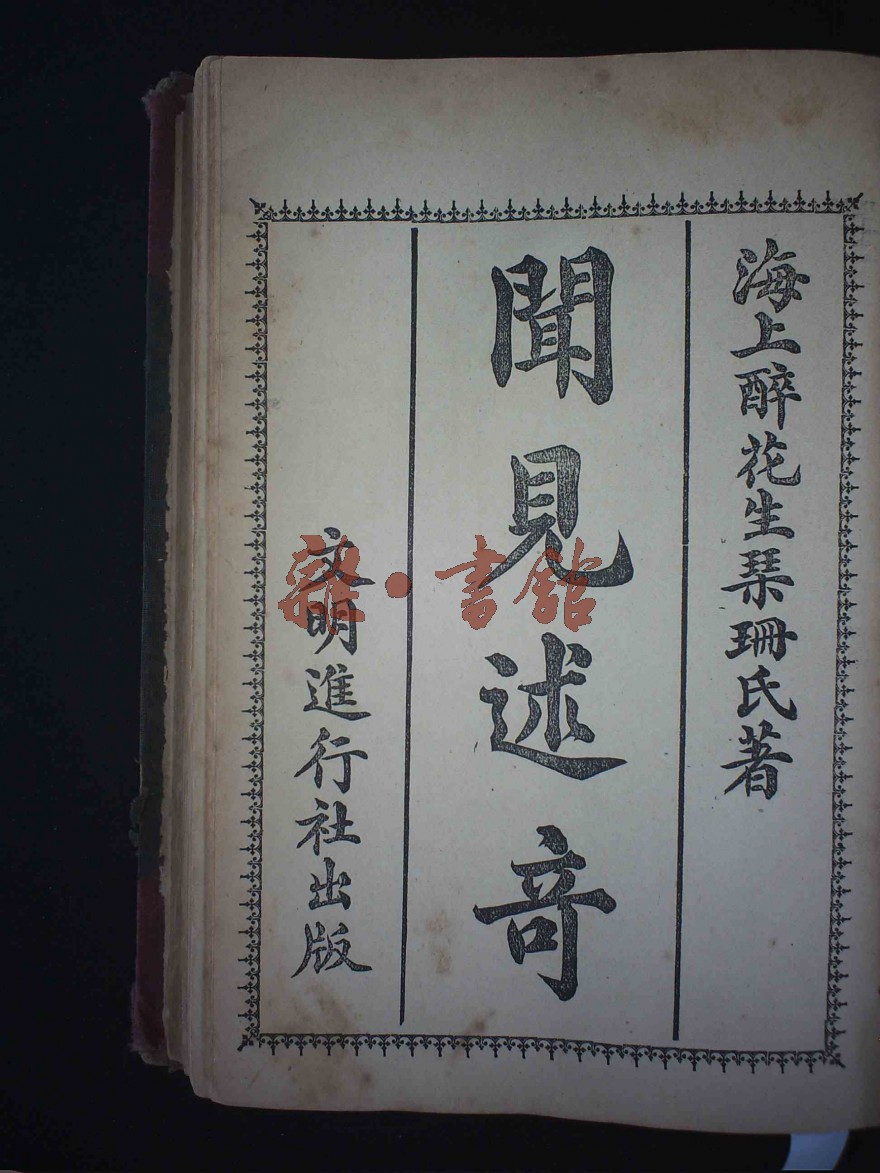 海上醉花生琹珊氏著
聞見述竒
文明進行社出版
雜·書館